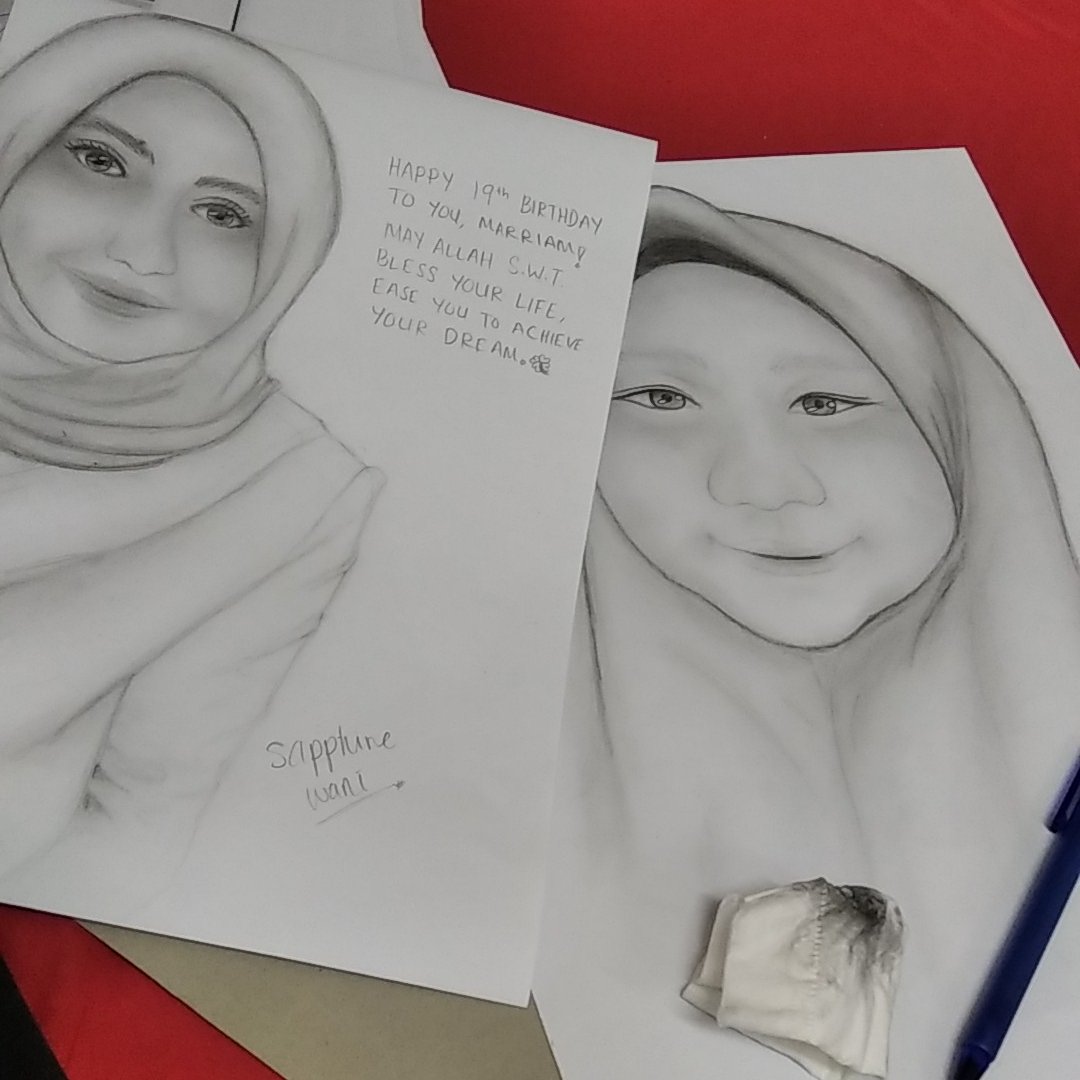 HAPPY 19th BIRTHDAY
TO YOU, MARRIAM!
MAY ALLAH S.W.T.
BLESS YOUR LIFE,
EASE YOU TO ACHIEVE
YOUR DREAM.
wani